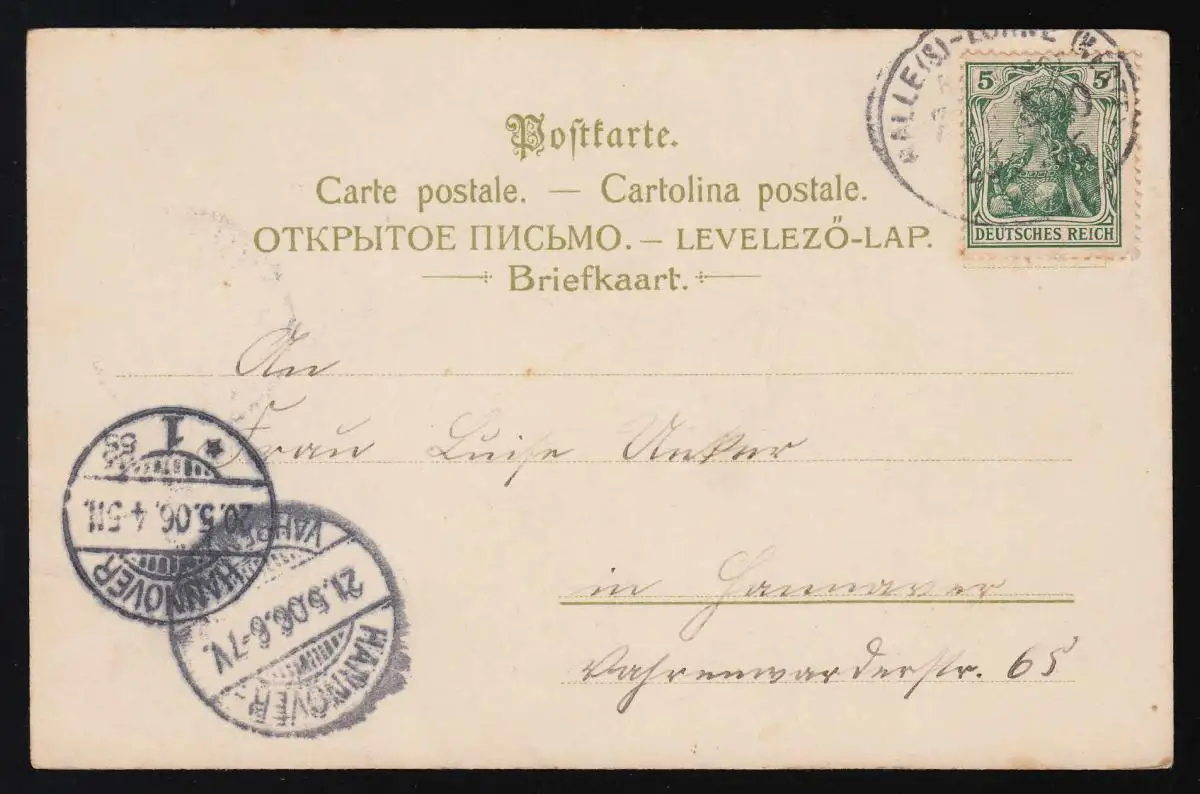 HALLE(S)-LÖHNE
5 5
DEUTSCHES REICH
Postkarte.
Carte postale. — Cartolina postale.
ОТКРЫТОЕ ПИСЬМО. — LEVELEZŐ-LAP.
Briefkaart.
An
Frau Luise Unker
in Hannover
Vahrenwarderstr. 65
1
20.5.06. 4-5N.
HANNOVER
21.5.06. 6-7V.
HANNOVER-